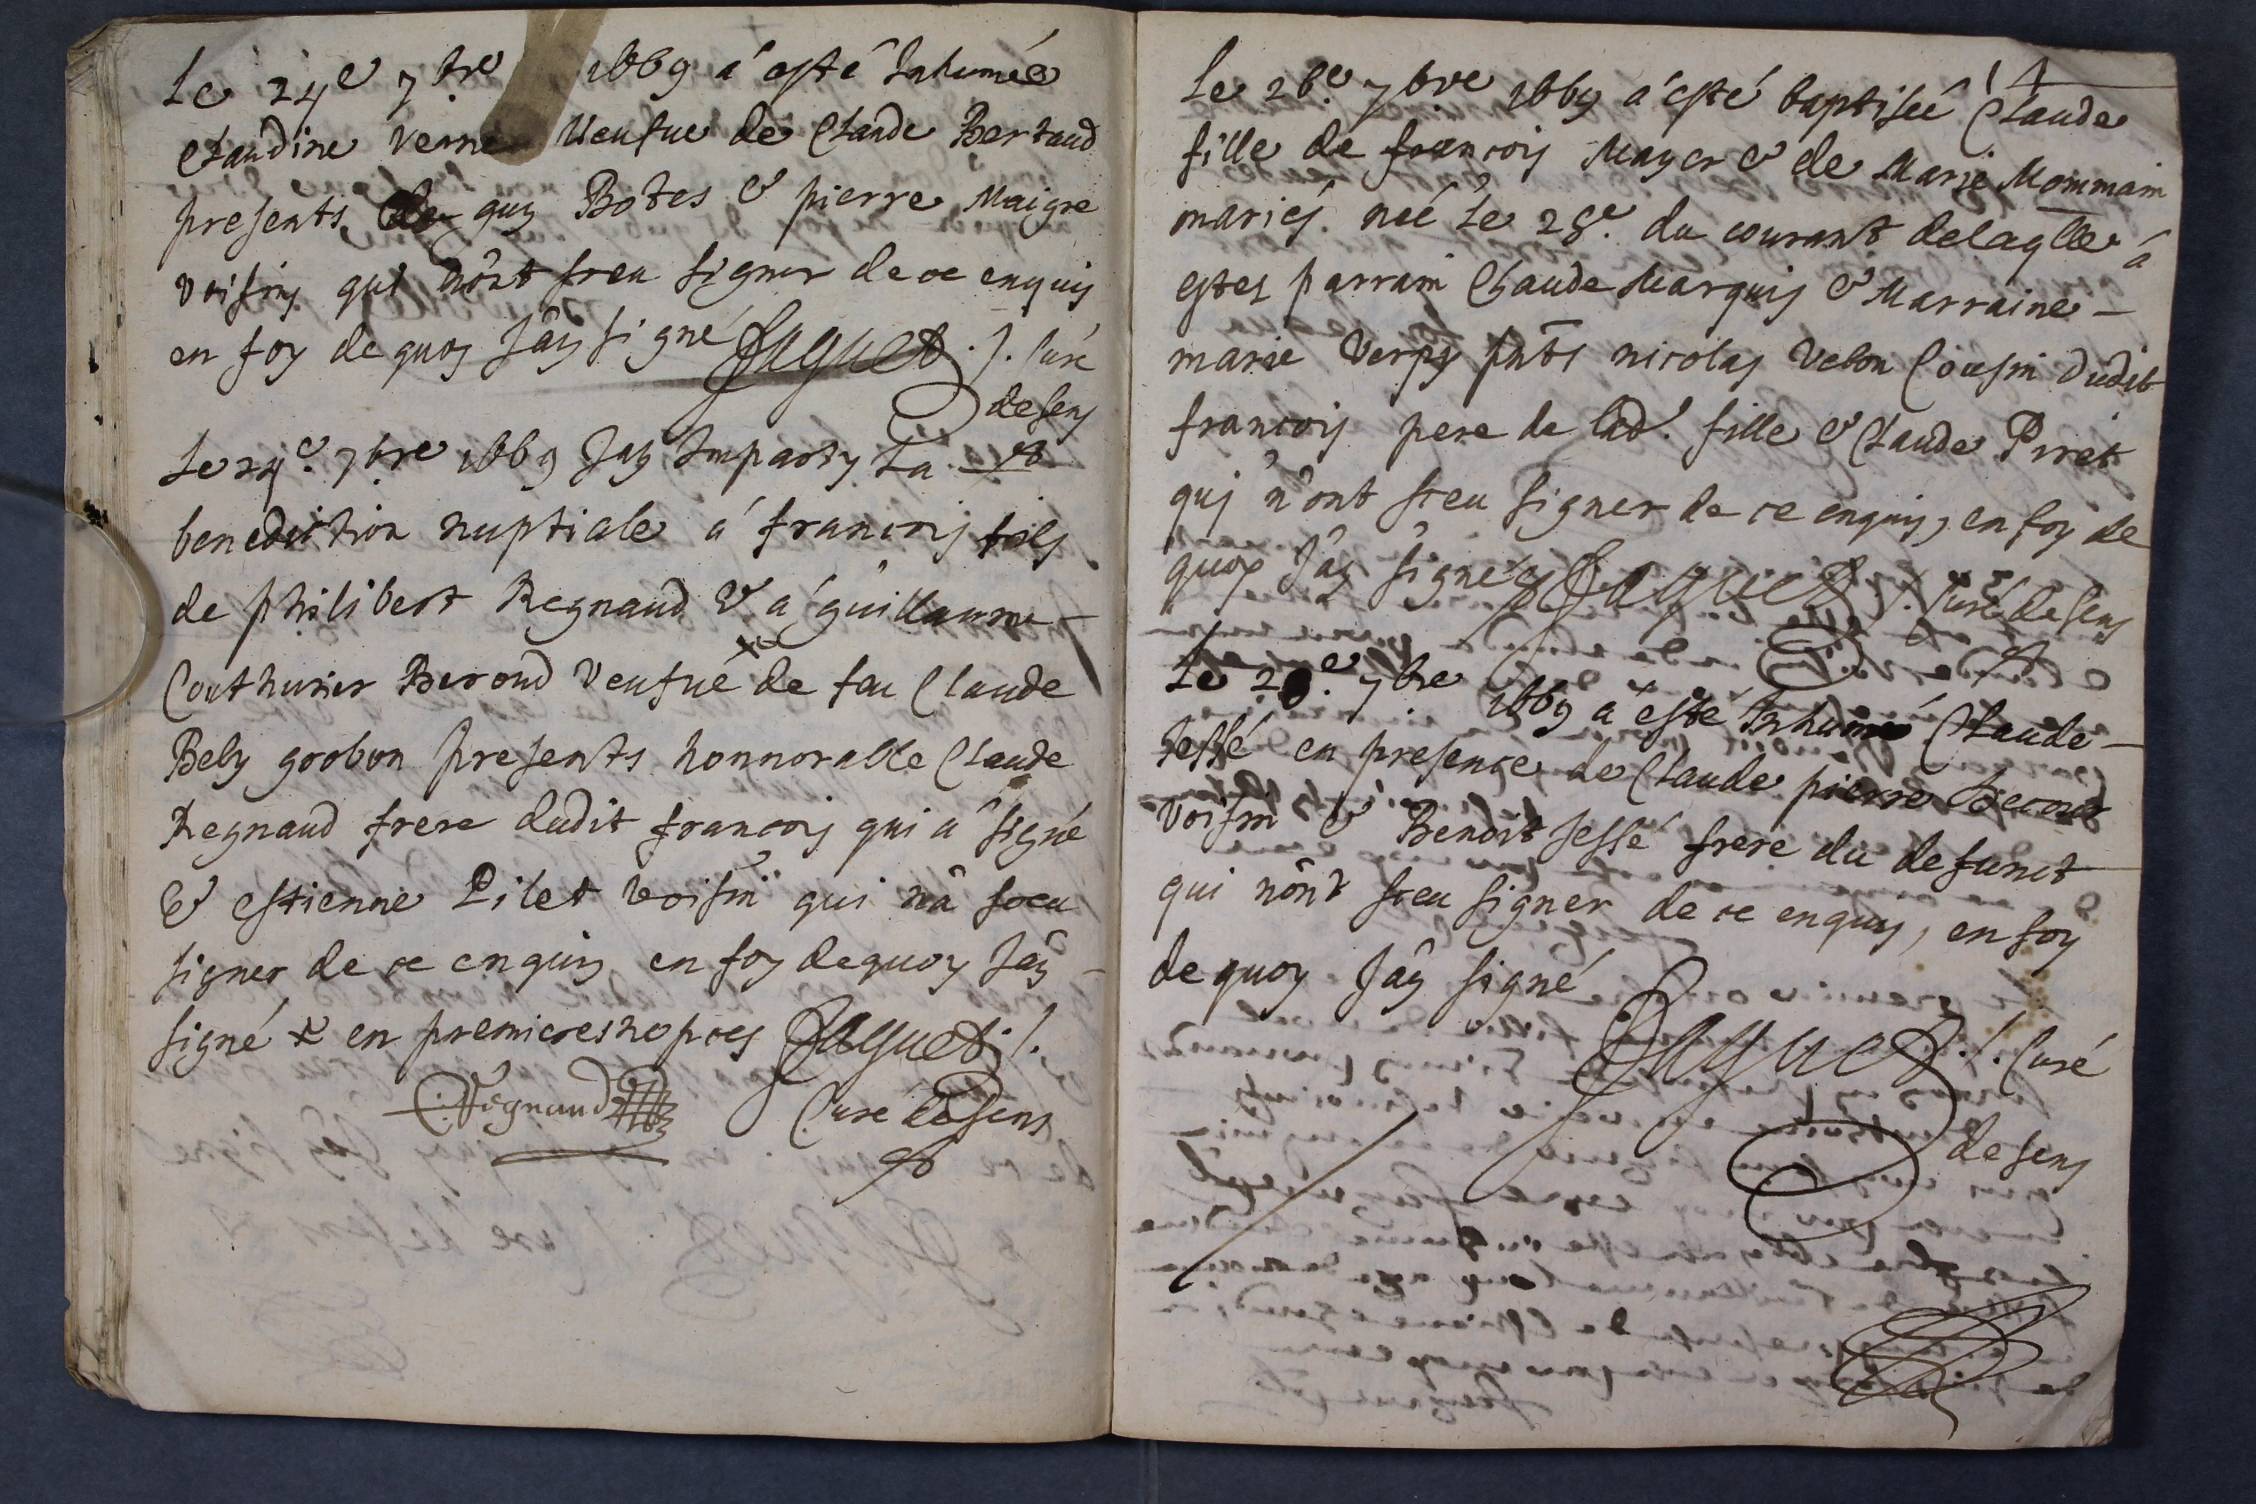 Le 24e 7bre 1669 a esté Inhumée
Claudine Verne Veufue de Claude Bertaud
presents guy Botes & pierre Maigre
voisins qui nônt sceu signer de ce enquis
en foy de quoy Jây signé Jaquet ./. Curé
de sens
Le 24e. 7bre 1669 Jay Imparty La
benediction nuptiale á francois fils
de philibert Regnaud & á guillaume
Couthurier Berond Veufue de feu Claude
Bely goobon presents honnorable Claude
Regnaud frere dudit francois qui a signé
& estienne Pilet voisin qui nâ sceu
signer de ce enquis en foy dequoy Jây
signé x en premieres nopces Jaquet ./.
C. Regnaud Curé de sens
Le 26e. 7bre 1669 a esté baptisée Claude
fille de francois Mayer & de Marie Mommain
mariés. née Le 25e. du courant delaqlle á
estez parrain Claude Marquis & Marraine
marie Verpy pnts nicolas Vebon Cousin dudit
francois pere de lad. fille & Claude Piret
qui n'ont sceu signer de ce enquis, en foy de
quoy Jây signé Jaquet ./. Curé de sens
Le 7bre 1669 a esté Inhumé Claude
Jessé en presence de Claude pierre
voisin & Benoit Jessé frere du defunct
qui nônt sceu signer de ce enquis, en foy
de quoy Jây signé
Jaquet ./. Curé
de sens